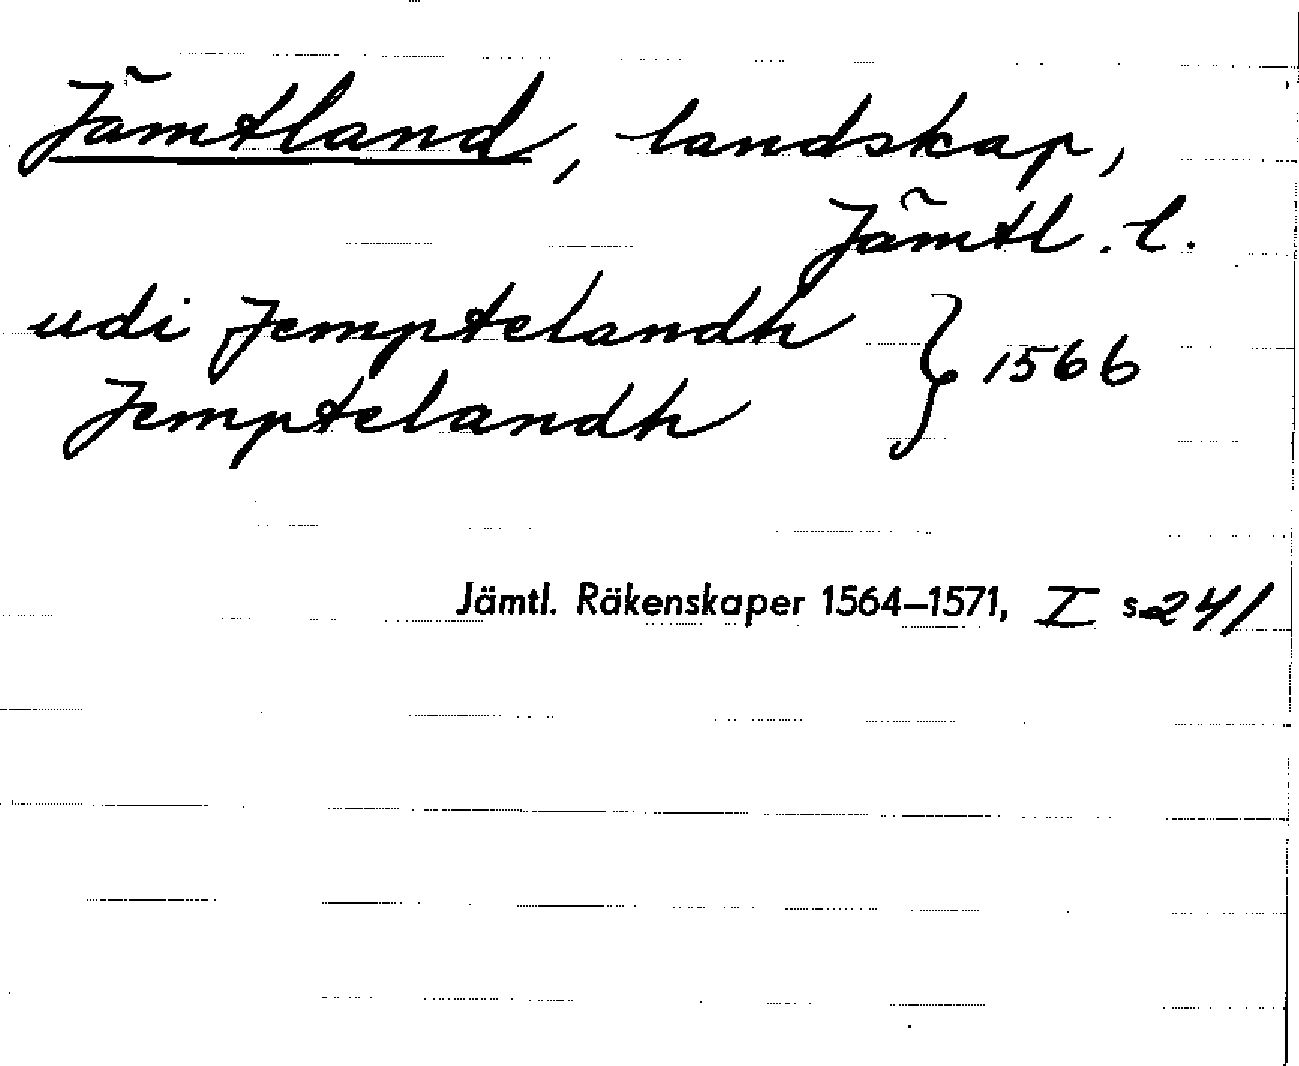 Jämtland, landskap,
Jämtl. l.
udi Jemptelandh
Jemptelandh } 1566
Jämtl. Räkenskaper 1564–1571, I s 241